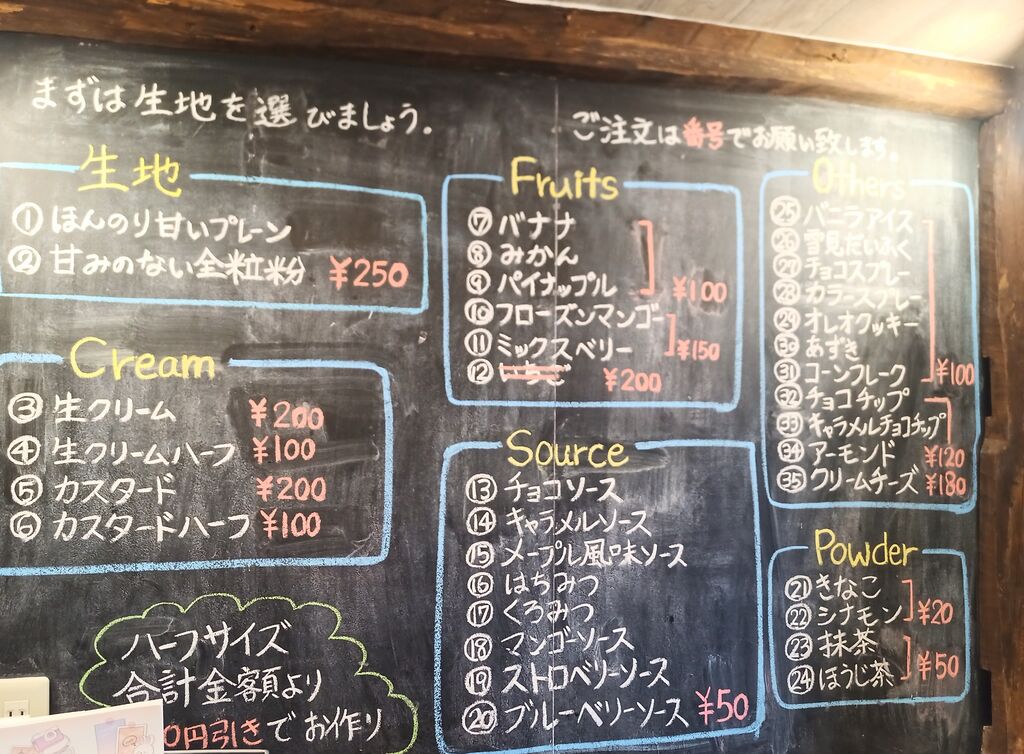 まずは生地を選びましょう。
ご注文は番号でお願い致します。
生地
①ほんのり甘いプレーン
②甘みのない全粒粉 ¥250
Cream
③生クリーム ¥200
④生クリームハーフ ¥100
⑤カスタード ¥200
⑥カスタードハーフ ¥100
ハーフサイズ
合計金額より
0円引きでお作り
Fruits
⑦バナナ
⑧みかん
⑨パイナップル ¥100
⑩フローズンマンゴー
⑪ミックスベリー ¥150
⑫いちご ¥200
Source
⑬チョコソース
⑭キャラメルソース
⑮メープル風味ソース
⑯はちみつ
⑰くろみつ
⑱マンゴーソース
⑲ストロベリーソース
⑳ブルーベリーソース ¥50
Others
㉕バニラアイス
㉖雪見だいふく
㉗チョコスプレー
㉘カラースプレー
㉙オレオクッキー
㉚あずき
㉛コーンフレーク ¥100
㉜チョコチップ
㉝キャラメルチョコチップ
㉞アーモンド ¥120
㉟クリームチーズ ¥180
Powder
㉑きなこ
㉒シナモン ¥20
㉓抹茶
㉔ほうじ茶 ¥50